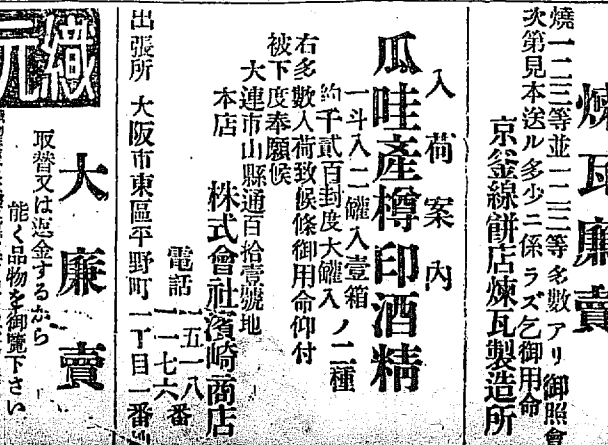 煉瓦廉賣
燒一二三等並一二三等多數アリ御照會
次第見本送ル多少ニ係ラズ乞御用命
京釜線餅店煉瓦製造所
入荷案內
瓜哇產樽印酒精
一斗入二罐入壹箱
約千貳百封度大罐入ノ二種
右多數入荷致候條御用命仰付
被下度奉願候
大連市山縣通百拾壹號地
本店 株式會社濱崎商店
電話 一五一八 一一七六番
出張所 大阪市東區平野町一丁目一番
織元
大廉賣
取替又は返金するから
能く品物を御覽下さい